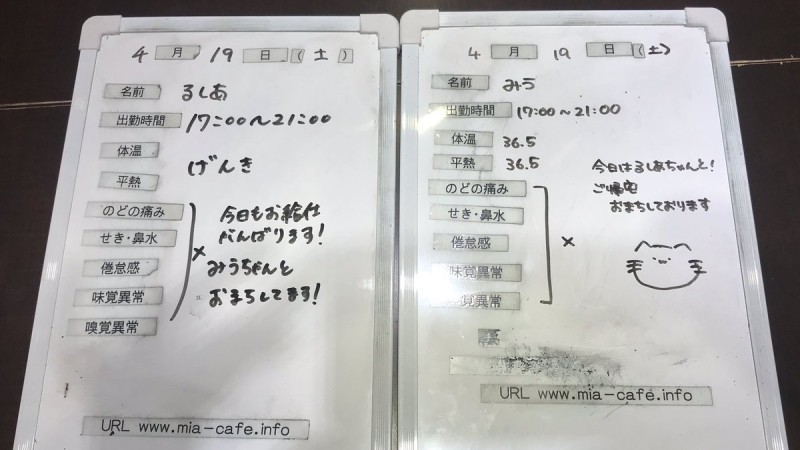 4 月 19 日 ( 土 )
名前 るしあ
出勤時間 17:00〜21:00
体温
げんき
平熱
のどの痛み
せき・鼻水
倦怠感
味覚異常
嗅覚異常
×
今日もお給仕
がんばります!
みうちゃんと
おまちしてます!
URL www.mia-cafe.info
4 月 19 日 ( 土 )
名前 みう
出勤時間 17:00〜21:00
体温 36.5
平熱 36.5
のどの痛み
せき・鼻水
倦怠感
味覚異常
覚異常
×
今日はるしあちゃんと!
ご帰宅
おまちしております
URL www.mia-cafe.info